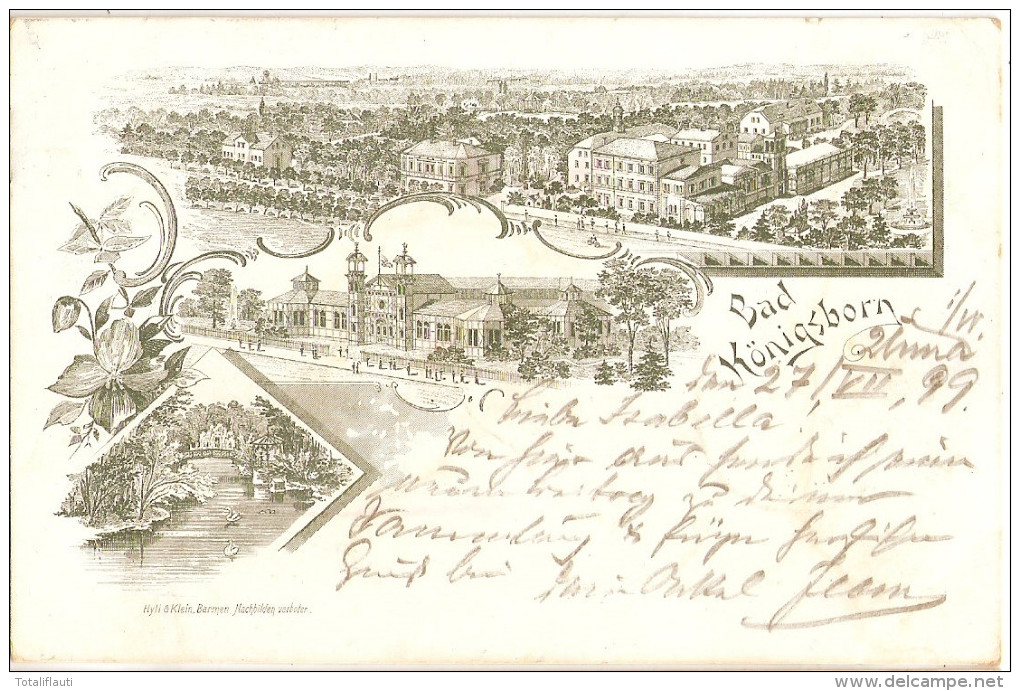 Bad
Königsborn
i/W.
Unna
den 27/VII 99.
Liebe Isabella,
Von hier aus sende ich meinen
Beitrag zu deiner
Sammlung & füge herzlichen
Gruß bei
Dein Onkel
Hyll & Klein, Barmen. Nachbilden verboten.
Totaliflauti
www.delcampe.net